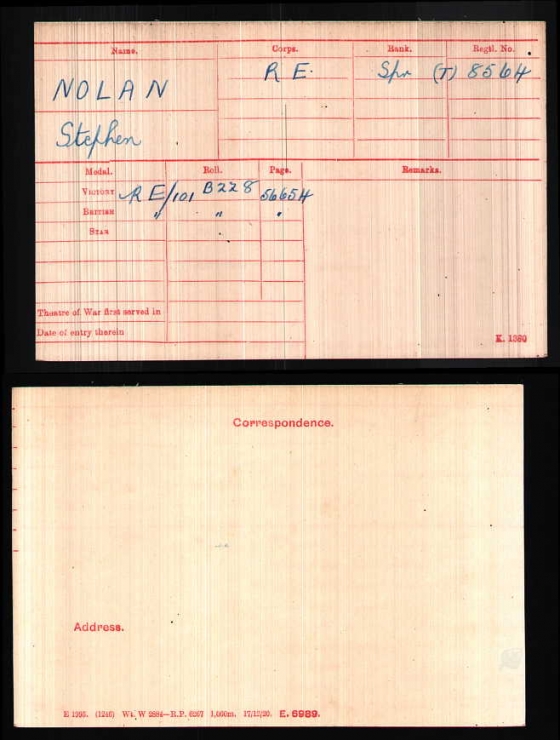 Name. Corps. Rank. Regtl. No.
NOLAN R E. Spr (T) 8564
Stephen
Medal. Roll. Page. Remarks.
VICTORY R E/101 B228 56654
BRITISH " " "
STAR
Theatre of War first served in
Date of entry therein
K. 1380
Correspondence.
Address.
E 1205. (1246) Wt. W 2884—R.P. 6267 1,000m. 17/12/20. E. 6989.